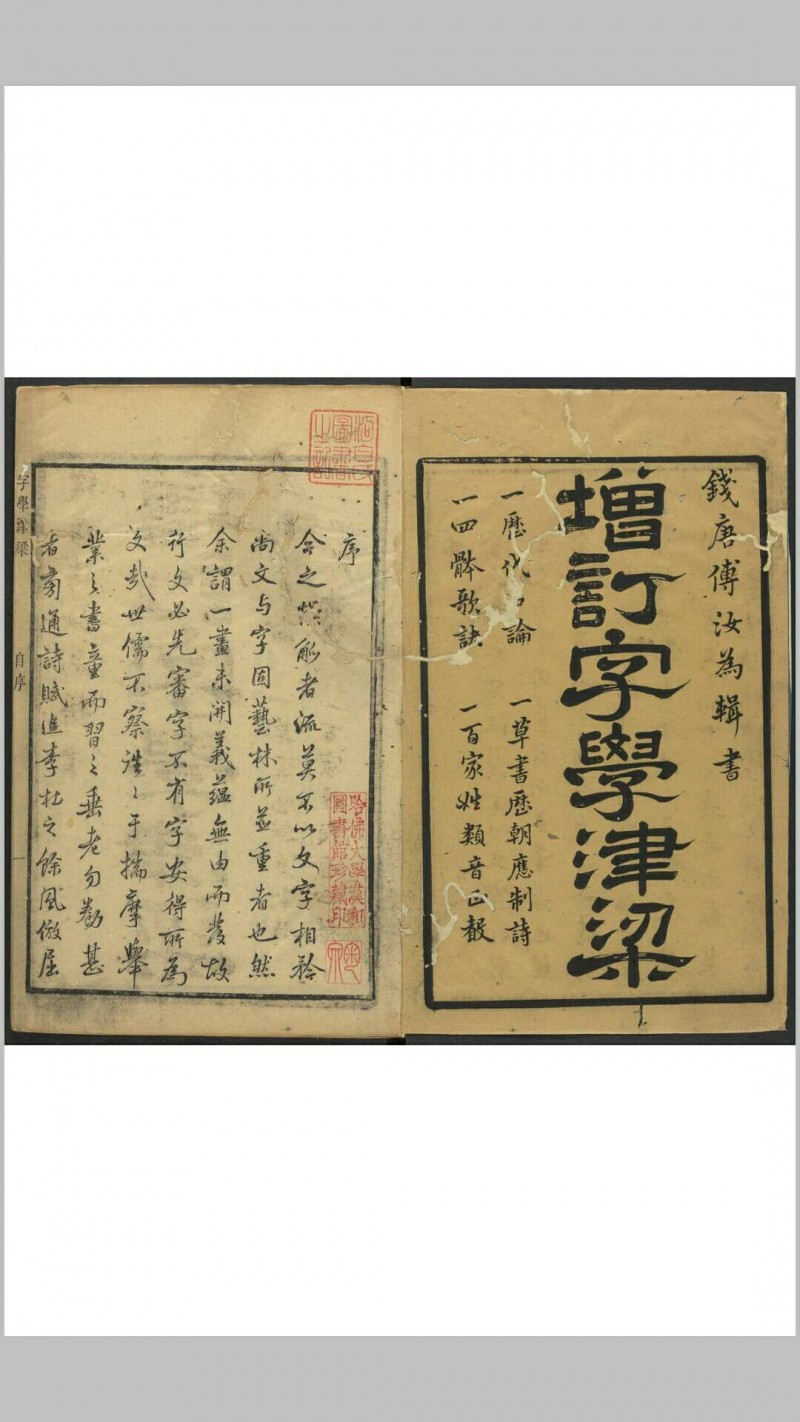 錢唐傅汝為輯書
增訂字學津梁
一歷代 論
一草書歷朝應制詩
一四骵歌訣
一百家姓類音正
序
今之 觚者流莫不以文字相矜
尚文与字固藝林所並重者也然
余謂一畫未開義蘊無由而發故
行文必先審字不有字安得所為
文哉世儒不察 〻于揣摩舉
業之書童而習之垂老勿 甚
者 通詩賦追李杜之餘風倣屈
字學津梁
自序
圖書
之記
哈佛大學漢和
圖書館珍藏印